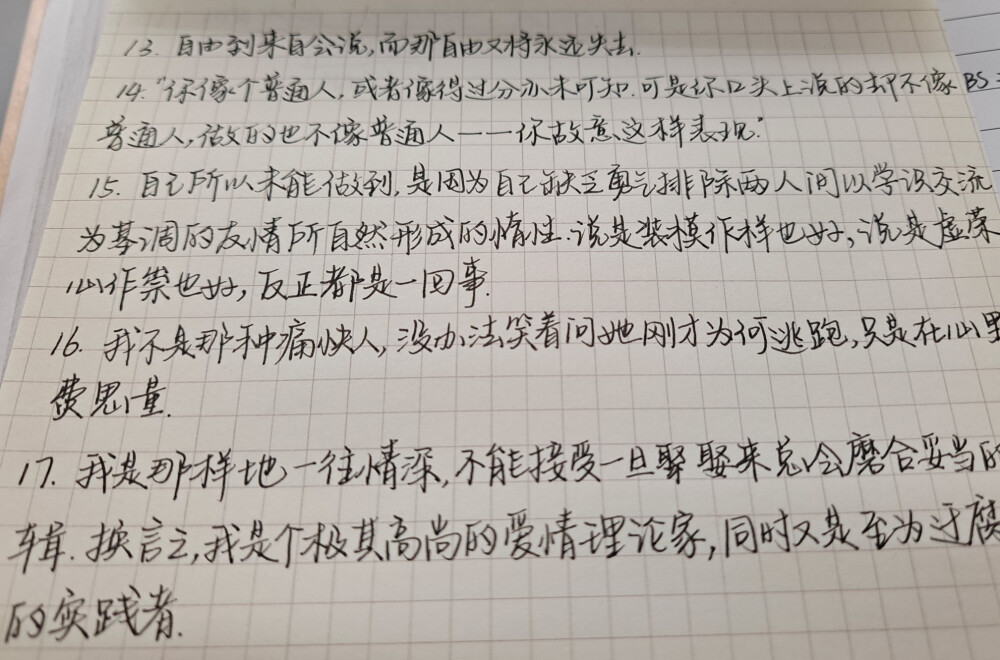 13. 自由到来自会说,而那自由又将永远失去.
14."你像个普通人,或者像得过分亦未可知.可是你口头上说的却不像 BS
普通人,做的也不像普通人——你故意这样表现."
15. 自己所以未能做到,是因为自己缺乏勇气排除两人间以学识交流
为基调的友情所自然形成的惰性.说是装模作样也好,说是虚荣
心作祟也好,反正都是一回事.
16. 我不是那种痛快人,没办法笑着问她刚才为何逃跑,只是在心里
费思量.
17. 我是那样地一往情深,不能接受一旦娶来总会磨合妥当的
辑.换言之,我是个极其高尚的爱情理论家,同时又是至为迂腐
的实践者.